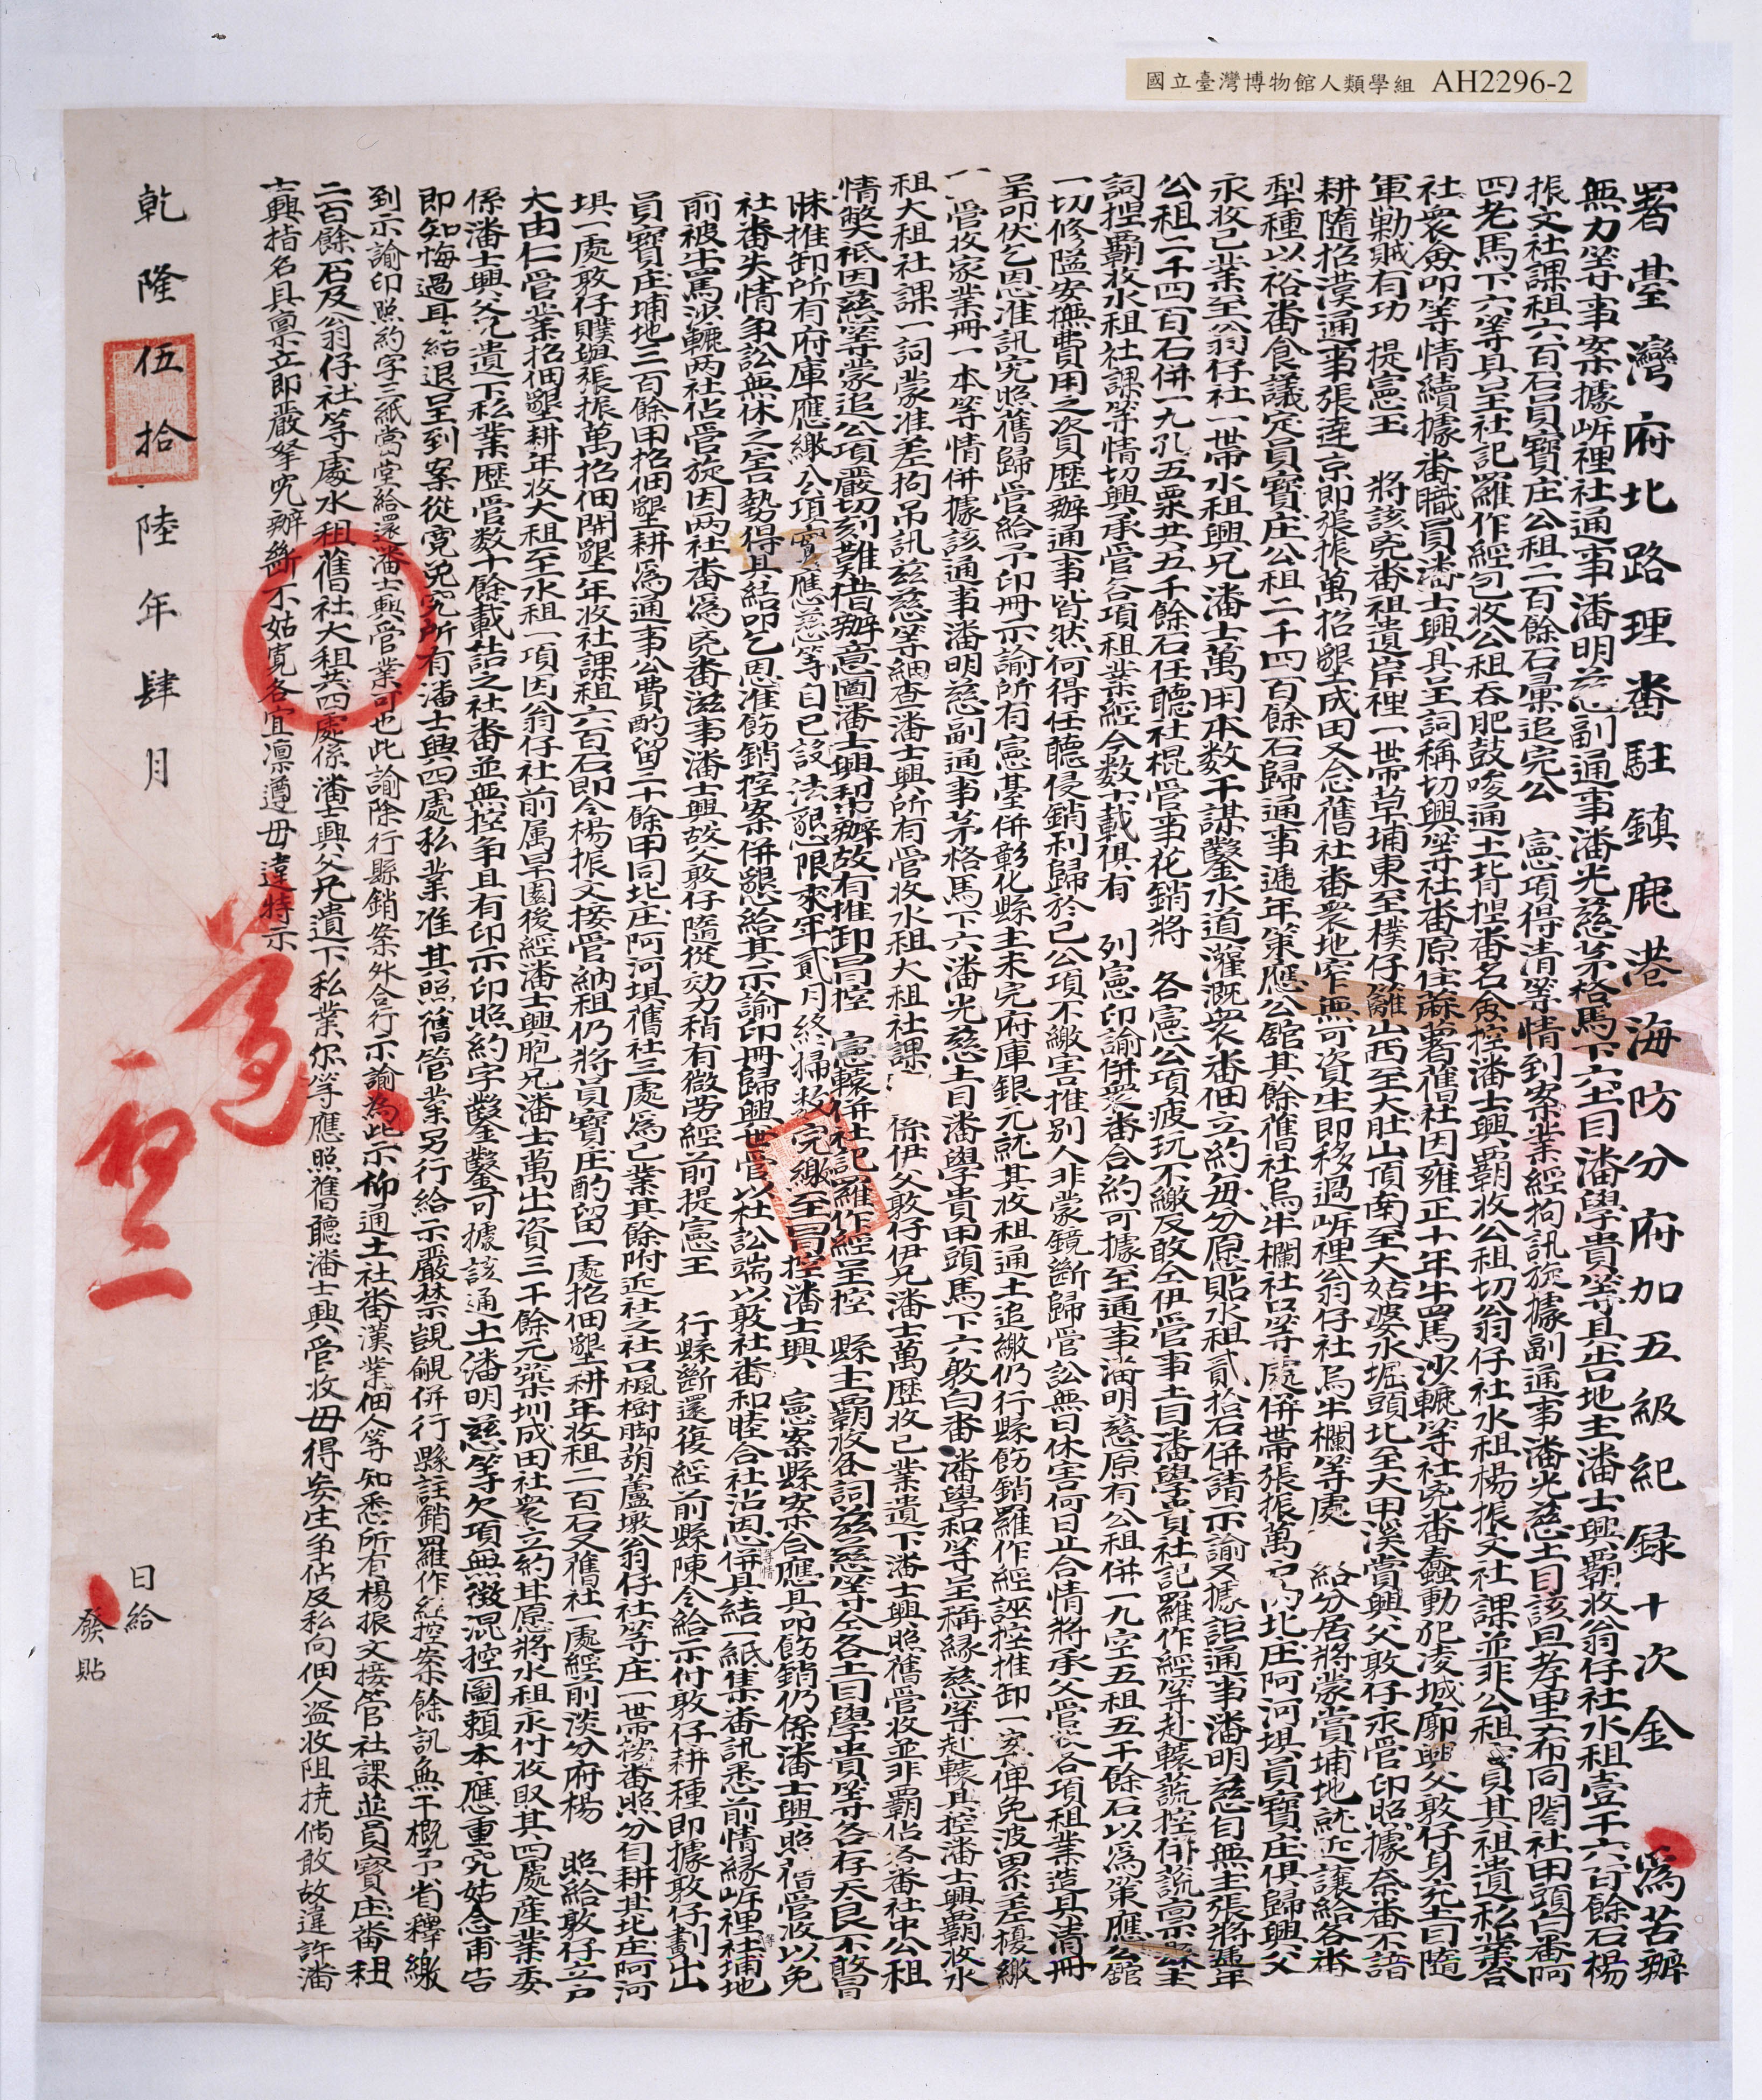 國立臺灣博物館人類學組 AH2296-2
署臺灣府北路理番駐鎮鹿港海防分府加五級紀録十次金 為苦辦
無力等事案據岍裡社通事潘明慈副通事潘光慈茅格馬下六土目潘學貴等具告地主潘士興覇收翁仔社水租壹千六百餘石楊
振文社課租六百石員寶庄公租二百餘石彙追完公 憲項得清等情到案業經拘訊旋據副通事潘光慈土目該旦孝里希同閤社甲頭白番阿
四老馬下六等具呈社記羅作經包收公租吞肥鼓唆通土背捏番名僉控潘士興覇收公租切翁仔社水租楊振文社課並非公租員其祖遺私業合
社衆僉叩等情續據番職員潘士興具呈詞稱切興等社番原住蔴薯舊社因雍正十年牛罵沙轆等社兇番蠢動犯凌城廓興父敦仔身充土目隨
軍勦賊有功 提憲王 將該兇番祖遺岸裡一帶草埔東至樸仔籬山西至大肚山頂南至大姑婆水堀頭北至大甲溪賞興父敦仔永管印照據奈番不諳
耕隨招漢通事張達京即張振萬招墾成田又念舊社番衆地窄無可資生即移過岍裡翁仔社烏牛欄等處 給分居將蒙賞埔地就近讓給各番
犁種以裕番食議定員寶庄公租二千四百餘石歸通事遞年策應公舘其餘舊社烏牛欄社口等處併帶張振萬 北庄阿河埧員寶庄俱歸興父
永收己業至翁仔社一帶水租興兄潘士萬用本数千謀鑿水道灌溉衆番佃立約每分愿貼水租貳拾石併請示諭又據詎通事潘明慈自無主張將遞年
公租二千四百石併一九孔五粟共五千餘石任聽社棍管事花銷將 各憲公項疲玩不繳及敢仝伊管事土目潘學貴社記羅作經等赴轅蔬控併蔬
詞捏覇收水租社課等情切興承管各項租業經今数十載俱有 列憲印諭併衆番合約可據至通事潘明慈原有公租併一九空五租五千餘石以為策應公舘
一切修隘安撫費用之資歷辦通事皆然何得任聽侵銷利歸於己公項不繳害推别人非蒙鏡斷歸管訟無日休害何日止合情將承父管收各項租業造具清冊
呈叩伏乞恩准訊究照舊歸管給予印冊示諭所有憲臺併彰化縣主未完府庫銀元就其收租通土追繳仍行縣飭銷羅作經誣控推卸一案俾免波累差擾繳
一管收家業冊一本等情併據該通事潘明慈副通事茅格馬下六潘光慈土目潘學貴甲頭馬下六敦白番潘學和等呈稱緣慈等赴轅具控潘士興覇收水
租大租社課一詞蒙准差拘吊訊茲慈等細查潘士興所有管收水租大租社課 係伊父敦仔伊兄潘士萬歷收己業遺下潘士興照舊管收並非覇佔各番社中公租
情獘祇因慈等蒙追公項嚴切刻難措辦意圖潘士興和衷辦故有推卸冐控 憲轅併社記羅作經呈控 縣主覇收各詞茲慈等仝各土目學貴等各存天良不敢冐
昧推卸所有府庫應繳公項實應慈等自己設法懇限來年貳月終掃 完繳至冐控潘士興 憲案縣案合應具叩飭銷仍係潘士興照舊管收以免
社番失情争訟無休之害勢得具結叩乞恩准飭銷控案併懇給其示諭印冊歸興世管以杜訟端以敦社番和睦合社沾恩併具結一紙等情集番訊悉前情緣岍裡社埔地
前被牛罵沙轆两社佔管旋因两社番為兇番滋事潘士興故父敦仔隨從効力稍有微劳經前提憲王 行縣斷還復經前縣陳令給示付敦仔耕種即據敦仔劃出
員寶庄埔地三百餘甲招佃墾耕為通事公費酌留二十餘甲同北庄阿河埧舊社三處為己業其餘附近社之社口楓樹脚葫蘆墩翁仔社等庄一帶按番照分自耕其北庄阿河
埧一處敦仔贌與張振萬招佃開墾年收社課租六百石即今楊振文接管納租仍將員寶庄酌留一處招佃墾耕年收租二百石又舊社一處經前淡分府楊 照給敦仔立戸
大由仁管業招佃墾耕年收大租至水租一項因翁仔社前属旱園後經潘士興胞兄潘士萬出資三千餘元築圳成田社衆立約甘愿將水租永付收取其四處産業委
係潘士興父兄遺下私業歷管数十餘載詰之社番並無控争且有印示印照約字鑿鑿可據該通土潘明慈等欠項無徴混控圖賴本應重究姑念甫告
即知悔過具結退呈到案從寬免究所有潘士興四處私業准其照舊管業另行給示嚴禁覬覦併行縣註銷羅作經控案餘訊無干概予省釋繳
到示諭印照約字三紙當堂給還潘士興管業可也此諭除行縣銷案外合行示諭為此示仰通土社番漢業佃人等知悉所有楊振文接管社課並員寶庄番租
二百餘石及翁仔社等處水租舊社大租共四處係潘士興父兄遺下私業尔等應照舊聽潘士興管收毋得妄生争佔及私向佃人盗收阻撓倘敢故違許潘
士興指名具禀立即嚴拏究辦斷不姑寬各宜凛遵毋違特示
乾隆伍拾陸年肆月 日給
發貼